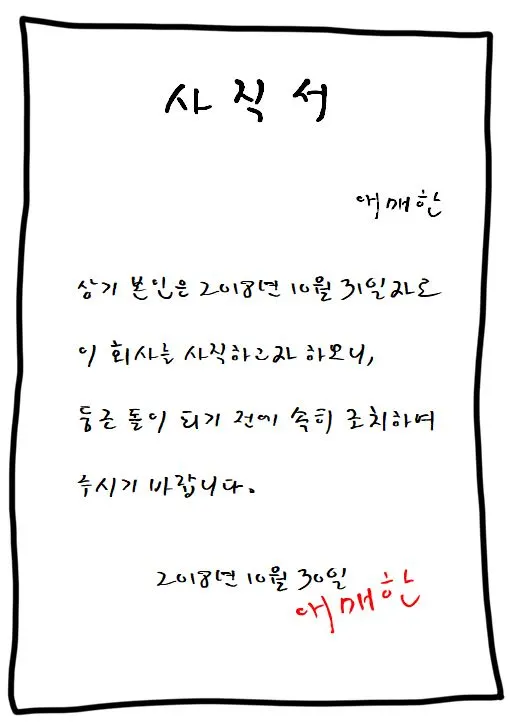 사직서
애매한
상기 본인은 2018년 10월 31일자로
이 회사를 사직하고자 하오니,
둥근 돌이 되기 전에 속히 조치하여
주시기 바랍니다.
2018년 10월 30일
애매한